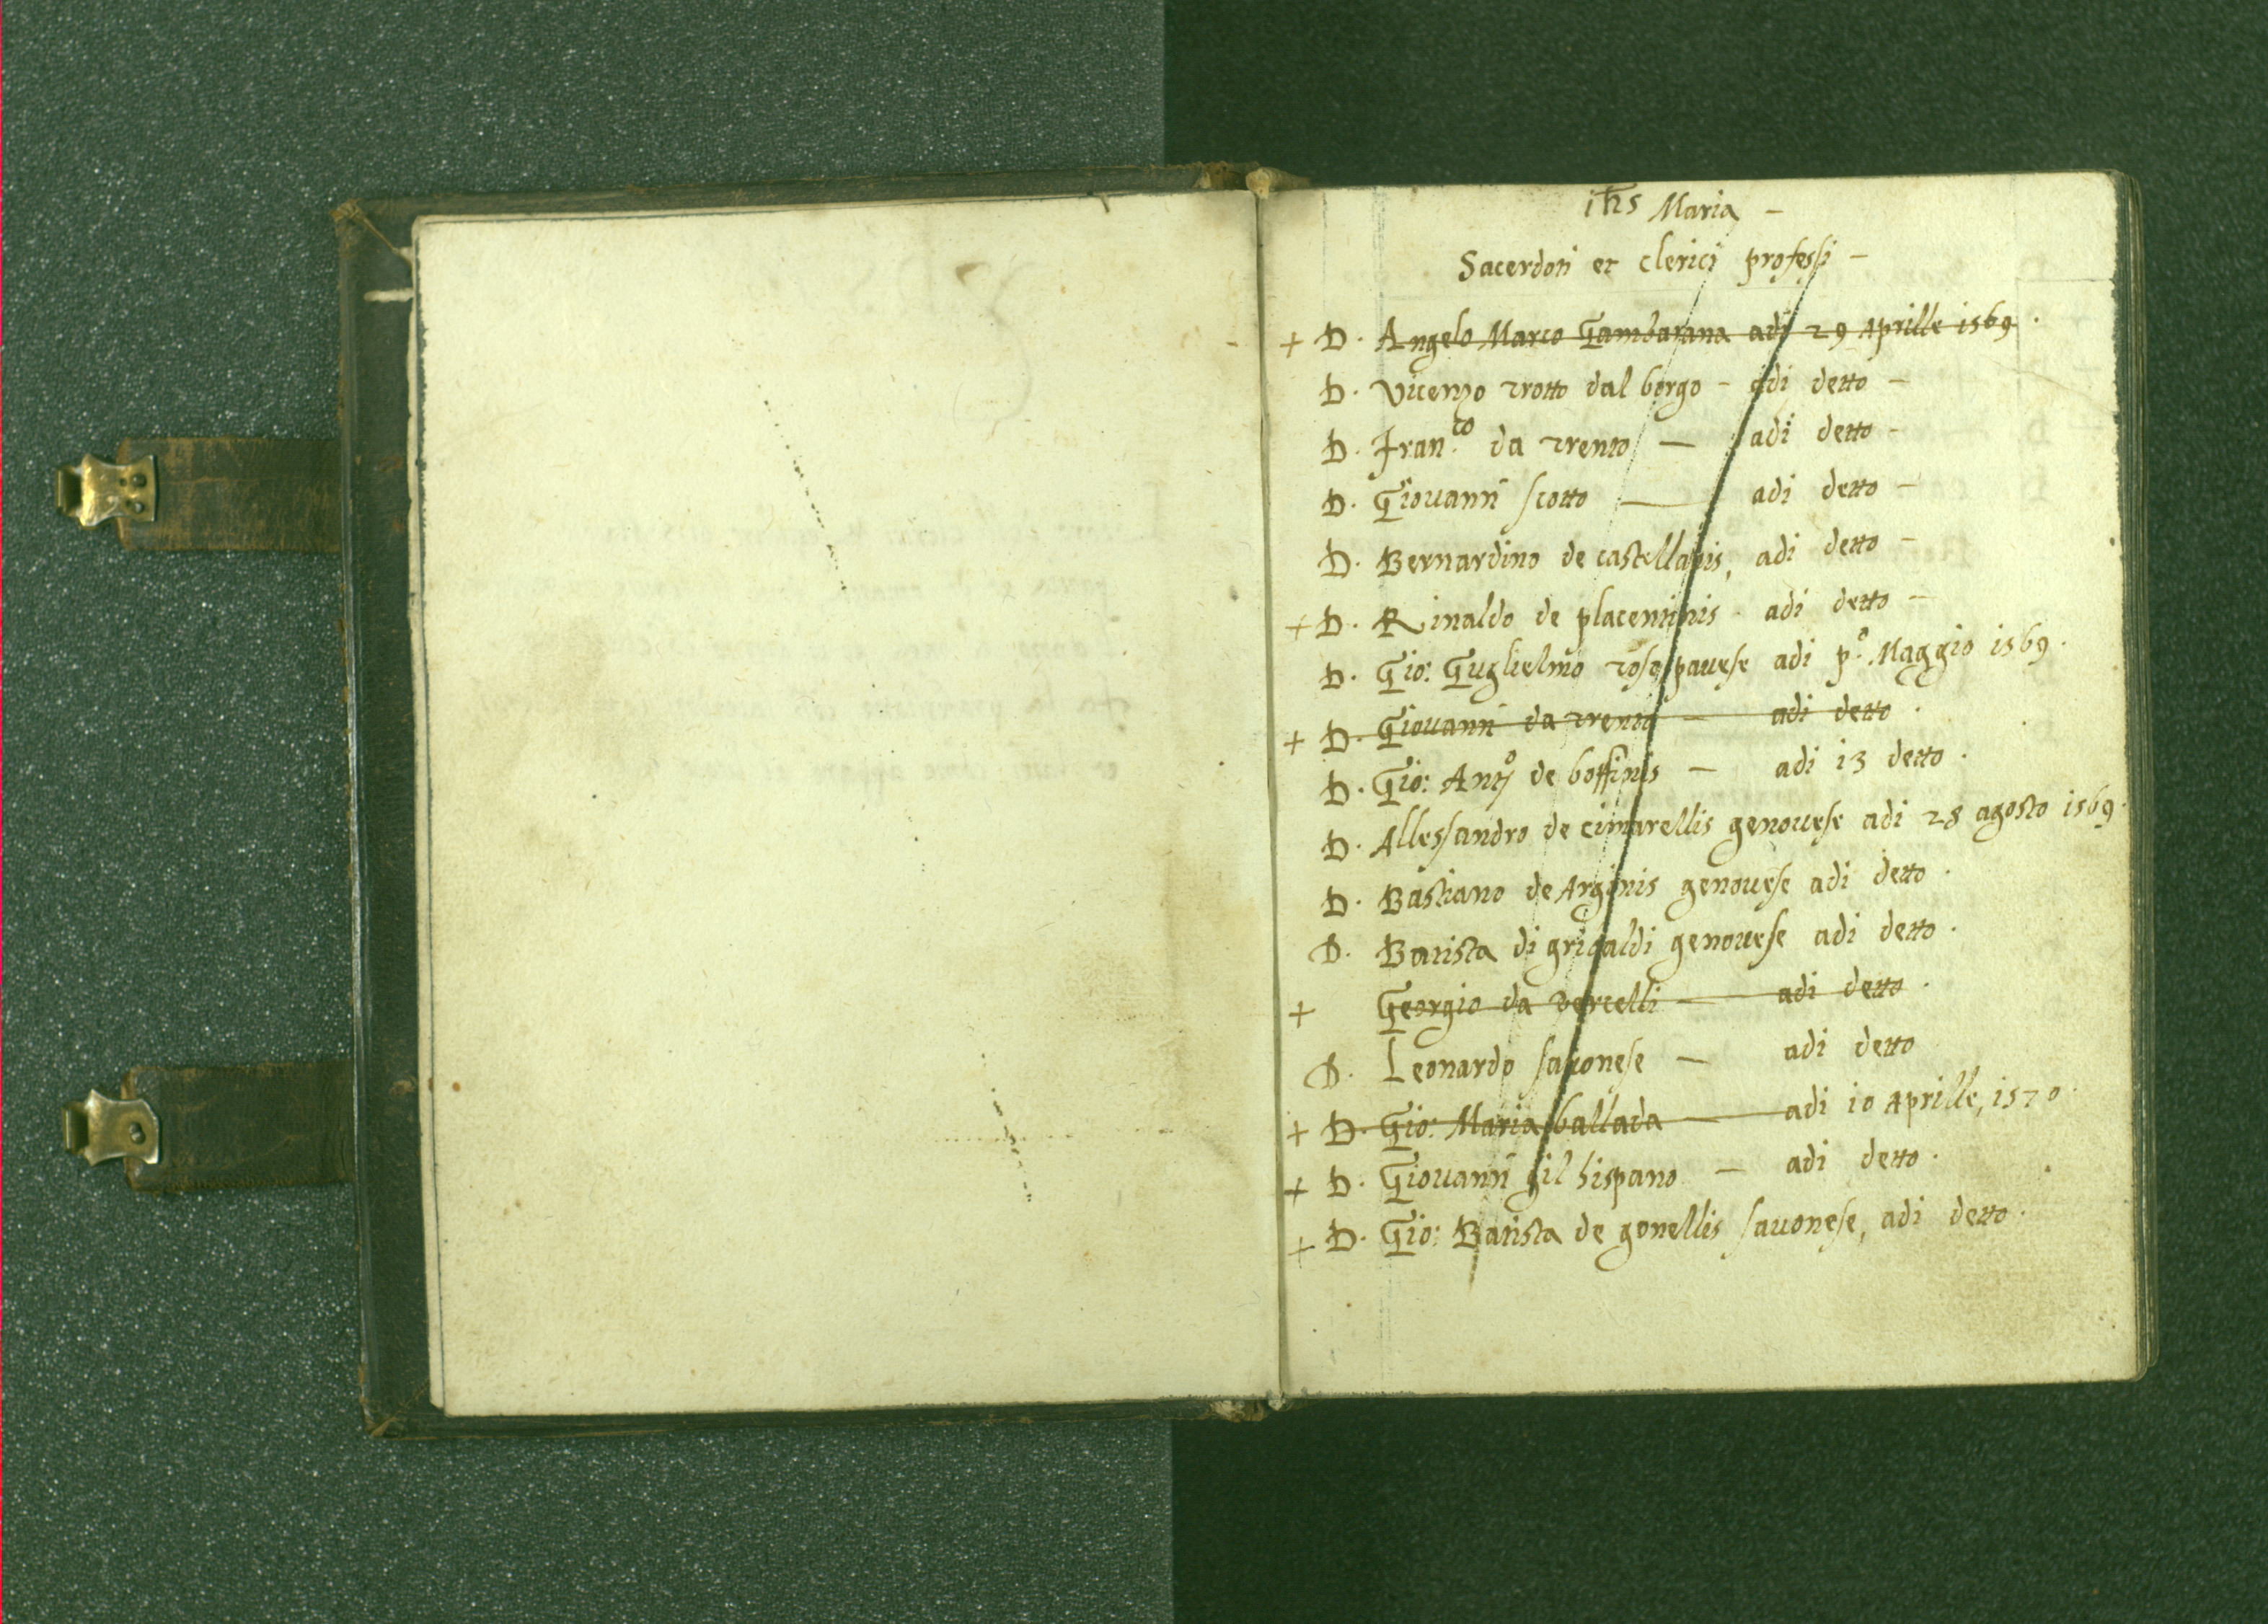 ihs Maria -
Sacerdoti et clerici professi -
+ D. Angelo Marco Gambarana adi 29 Aprille 1569.
D. Vicenzo trotto dal borgo - adi detto -
D. Fran.co da trento — adi detto -
D. Giovanni scotto — adi detto -
D. Bernardino de castellanis, adi detto -
+ D. Rinaldo de placentinis - adi detto -
D. Gio: Guglielmo toso pavese adi p.o Maggio 1569.
+ D. Giovanni da trento — adi detto.
D. Gio: Ant.o de boffinis — adi 13 detto.
D. Allessandro de cimarellis genovese adi 28 agosto 1569.
D. Bastiano de Arginis genovese adi detto.
D. Batista di grigaldi genovese adi detto.
+ Georgio da vercelli — adi detto.
D. Leonardo savonese — adi detto
+ D. Gio: Maria ballada — adi 10 Aprille, 1570.
+ D. Giovanni gil hispano — adi detto.
+ D. Gio: Batista de gonellis savonese, adi detto.